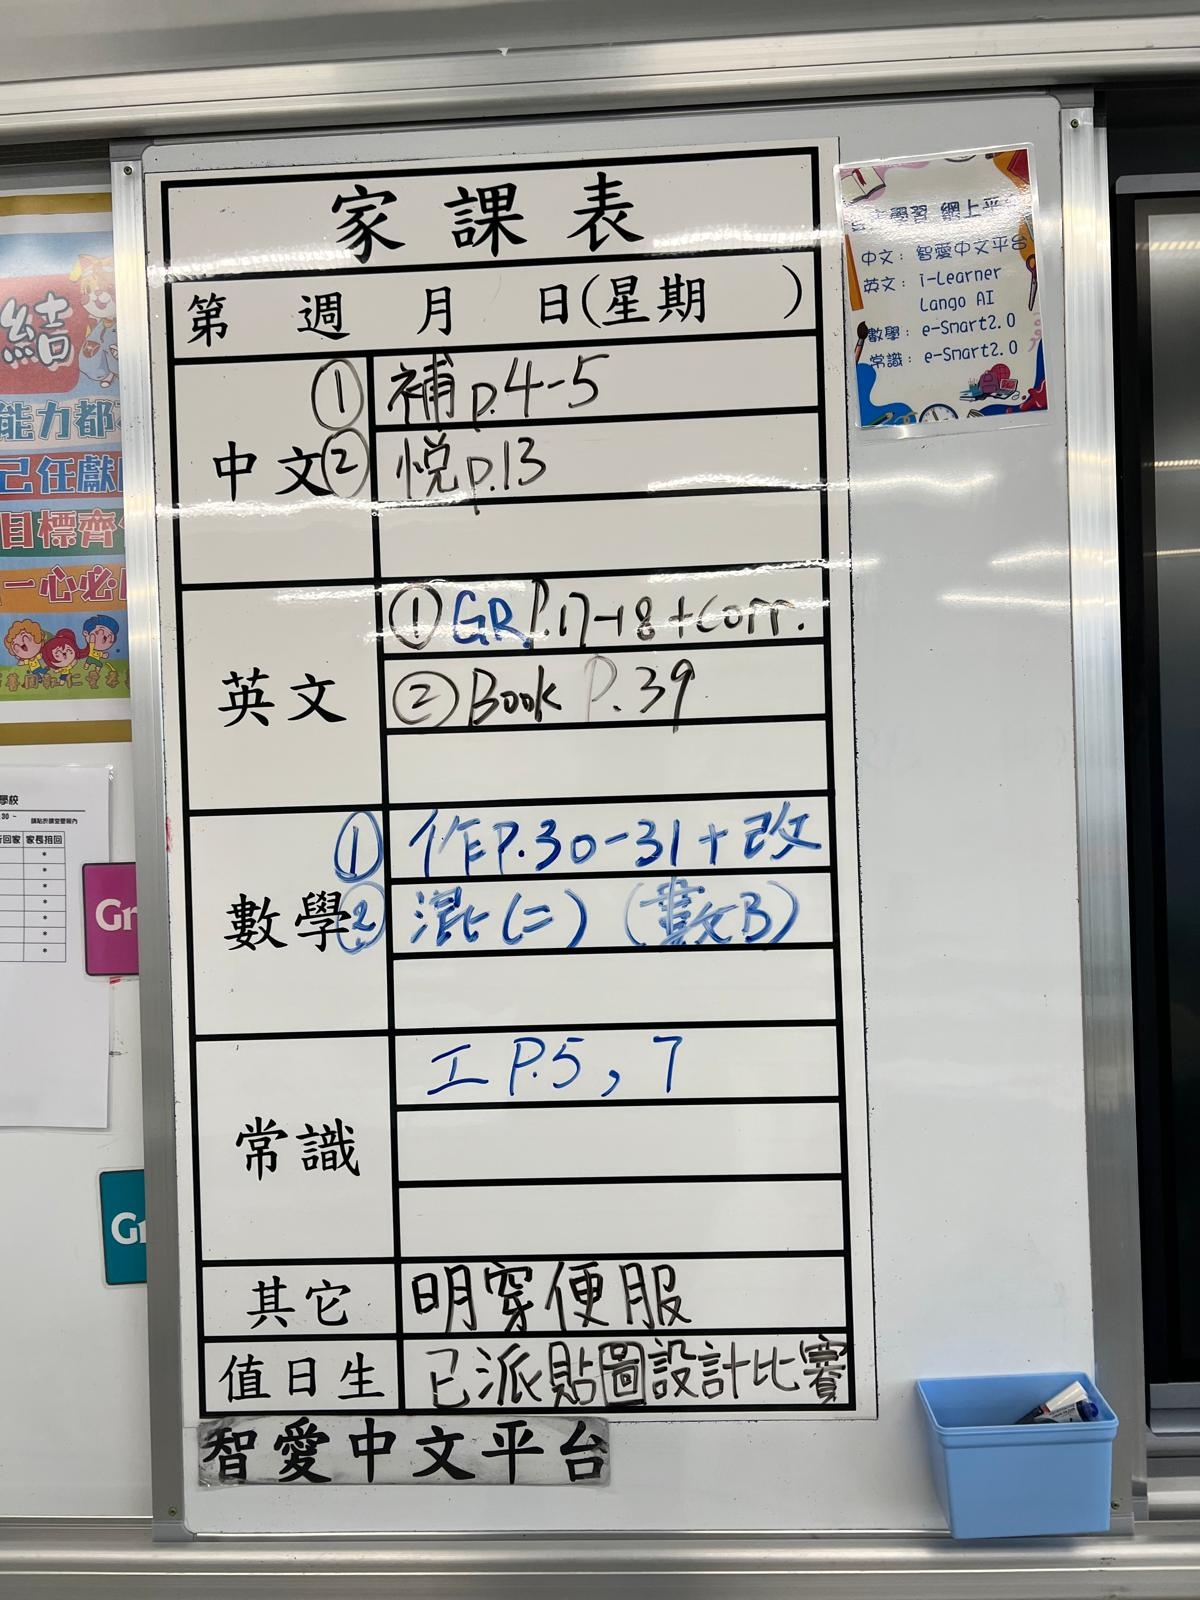 家課表
第 週 月 日(星期 )
中文
① 補p.4-5
② 悦p.13
英文
① GR P.17-18+corr.
② Book P.39
數學
① 作P.30-31+改
② 混(二) (數B)
常識
工P.5,7
其它
明穿便服
值日生
已派貼圖設計比賽
智愛中文平台
學習 網上平
中文：智愛中文平台
英文：i-Learner
Lango AI
數學：e-Smart2.0
常識：e-Smart2.0
結
能力都
己任獻
目標齊
一心必
學校
:30 ~
回家 家長接回
Gr
Gr